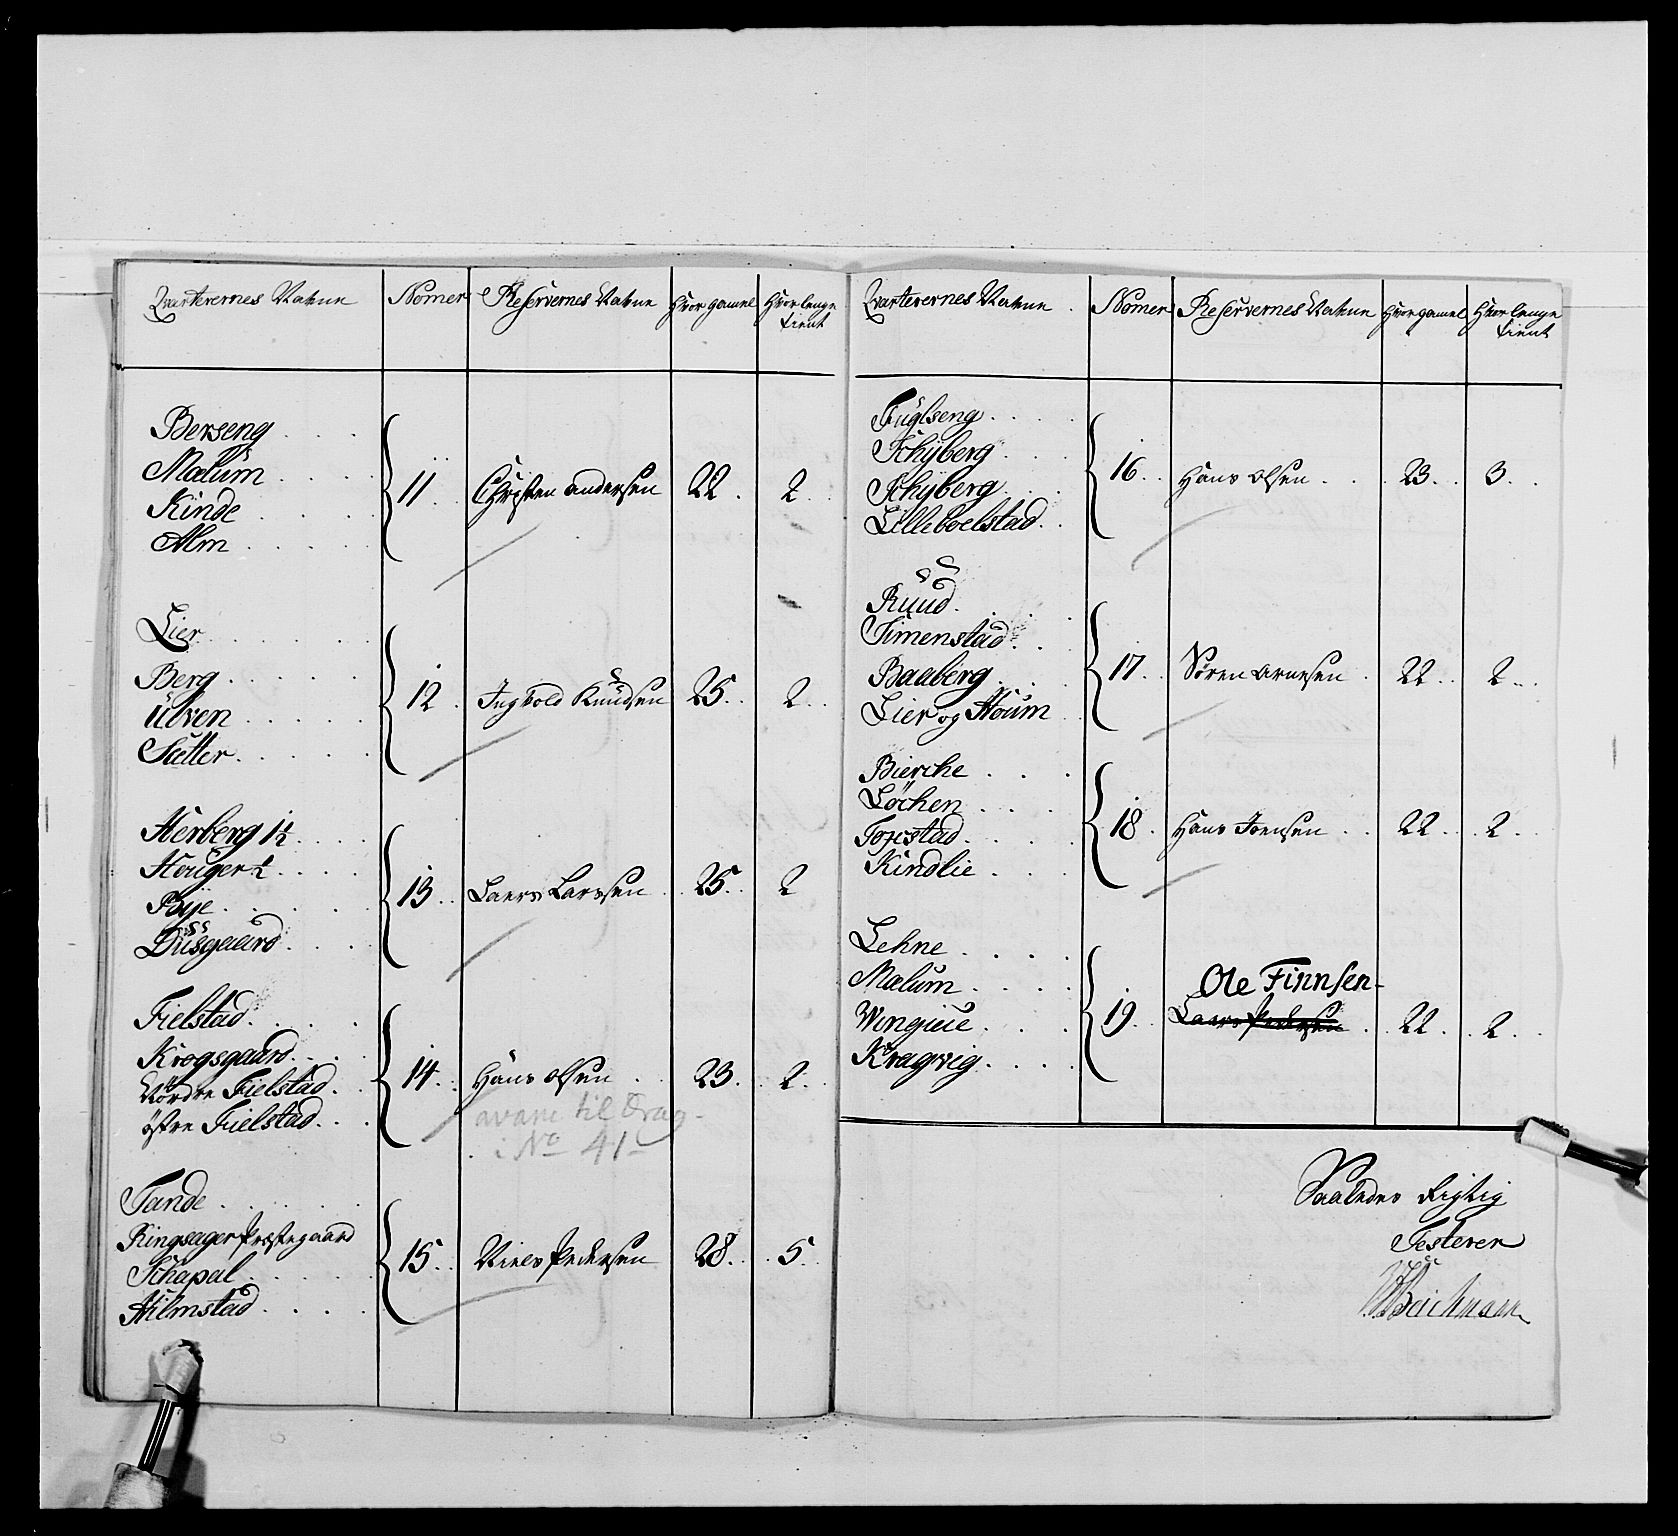 Qvarterernes Nafne Nomer Reservernes Nafne Hvor gamel Hvor lenge tient
Berseng
Mælum
Kinde
Alm
11 Christen Andersen 22 2
Lier
Berg
Ulven
Sætter
12 Ingvold Knudsen 25 2
Herberg 1½
Houger ½
Poje
Dusgaard
13 Laers Larssen 25 2
Fielstad
Krogsgaard
Nordre Fielstad
østre Fielstad
14 Hans Olsen 23 2
avanc til Drag
i No 41
Tande
Ringsager Præstegaard
Schapal
Hilmstad
15 Niels Pedersen 28 5
Qvarterernes Nafne Nomer Reservernes Nafne Hvor gamel Hvor lenge tient
Fuglseng
Schyberg
Schyberg
Lilleboelstad
16 Hans Olsen 23 3
Ruud
Simenstad
Baaberg
Lier og Houm
17 Søren Arnesen 22 2
Bierche
Løchen
Tojestad
Kindlie
18 Hans Joensen 22 2
Lehne
Mælum
Wingjeie
Kragvig
Ole Finnsen
19 Laers Pedersen 22 2
Saaledes Rigtig
Testerer